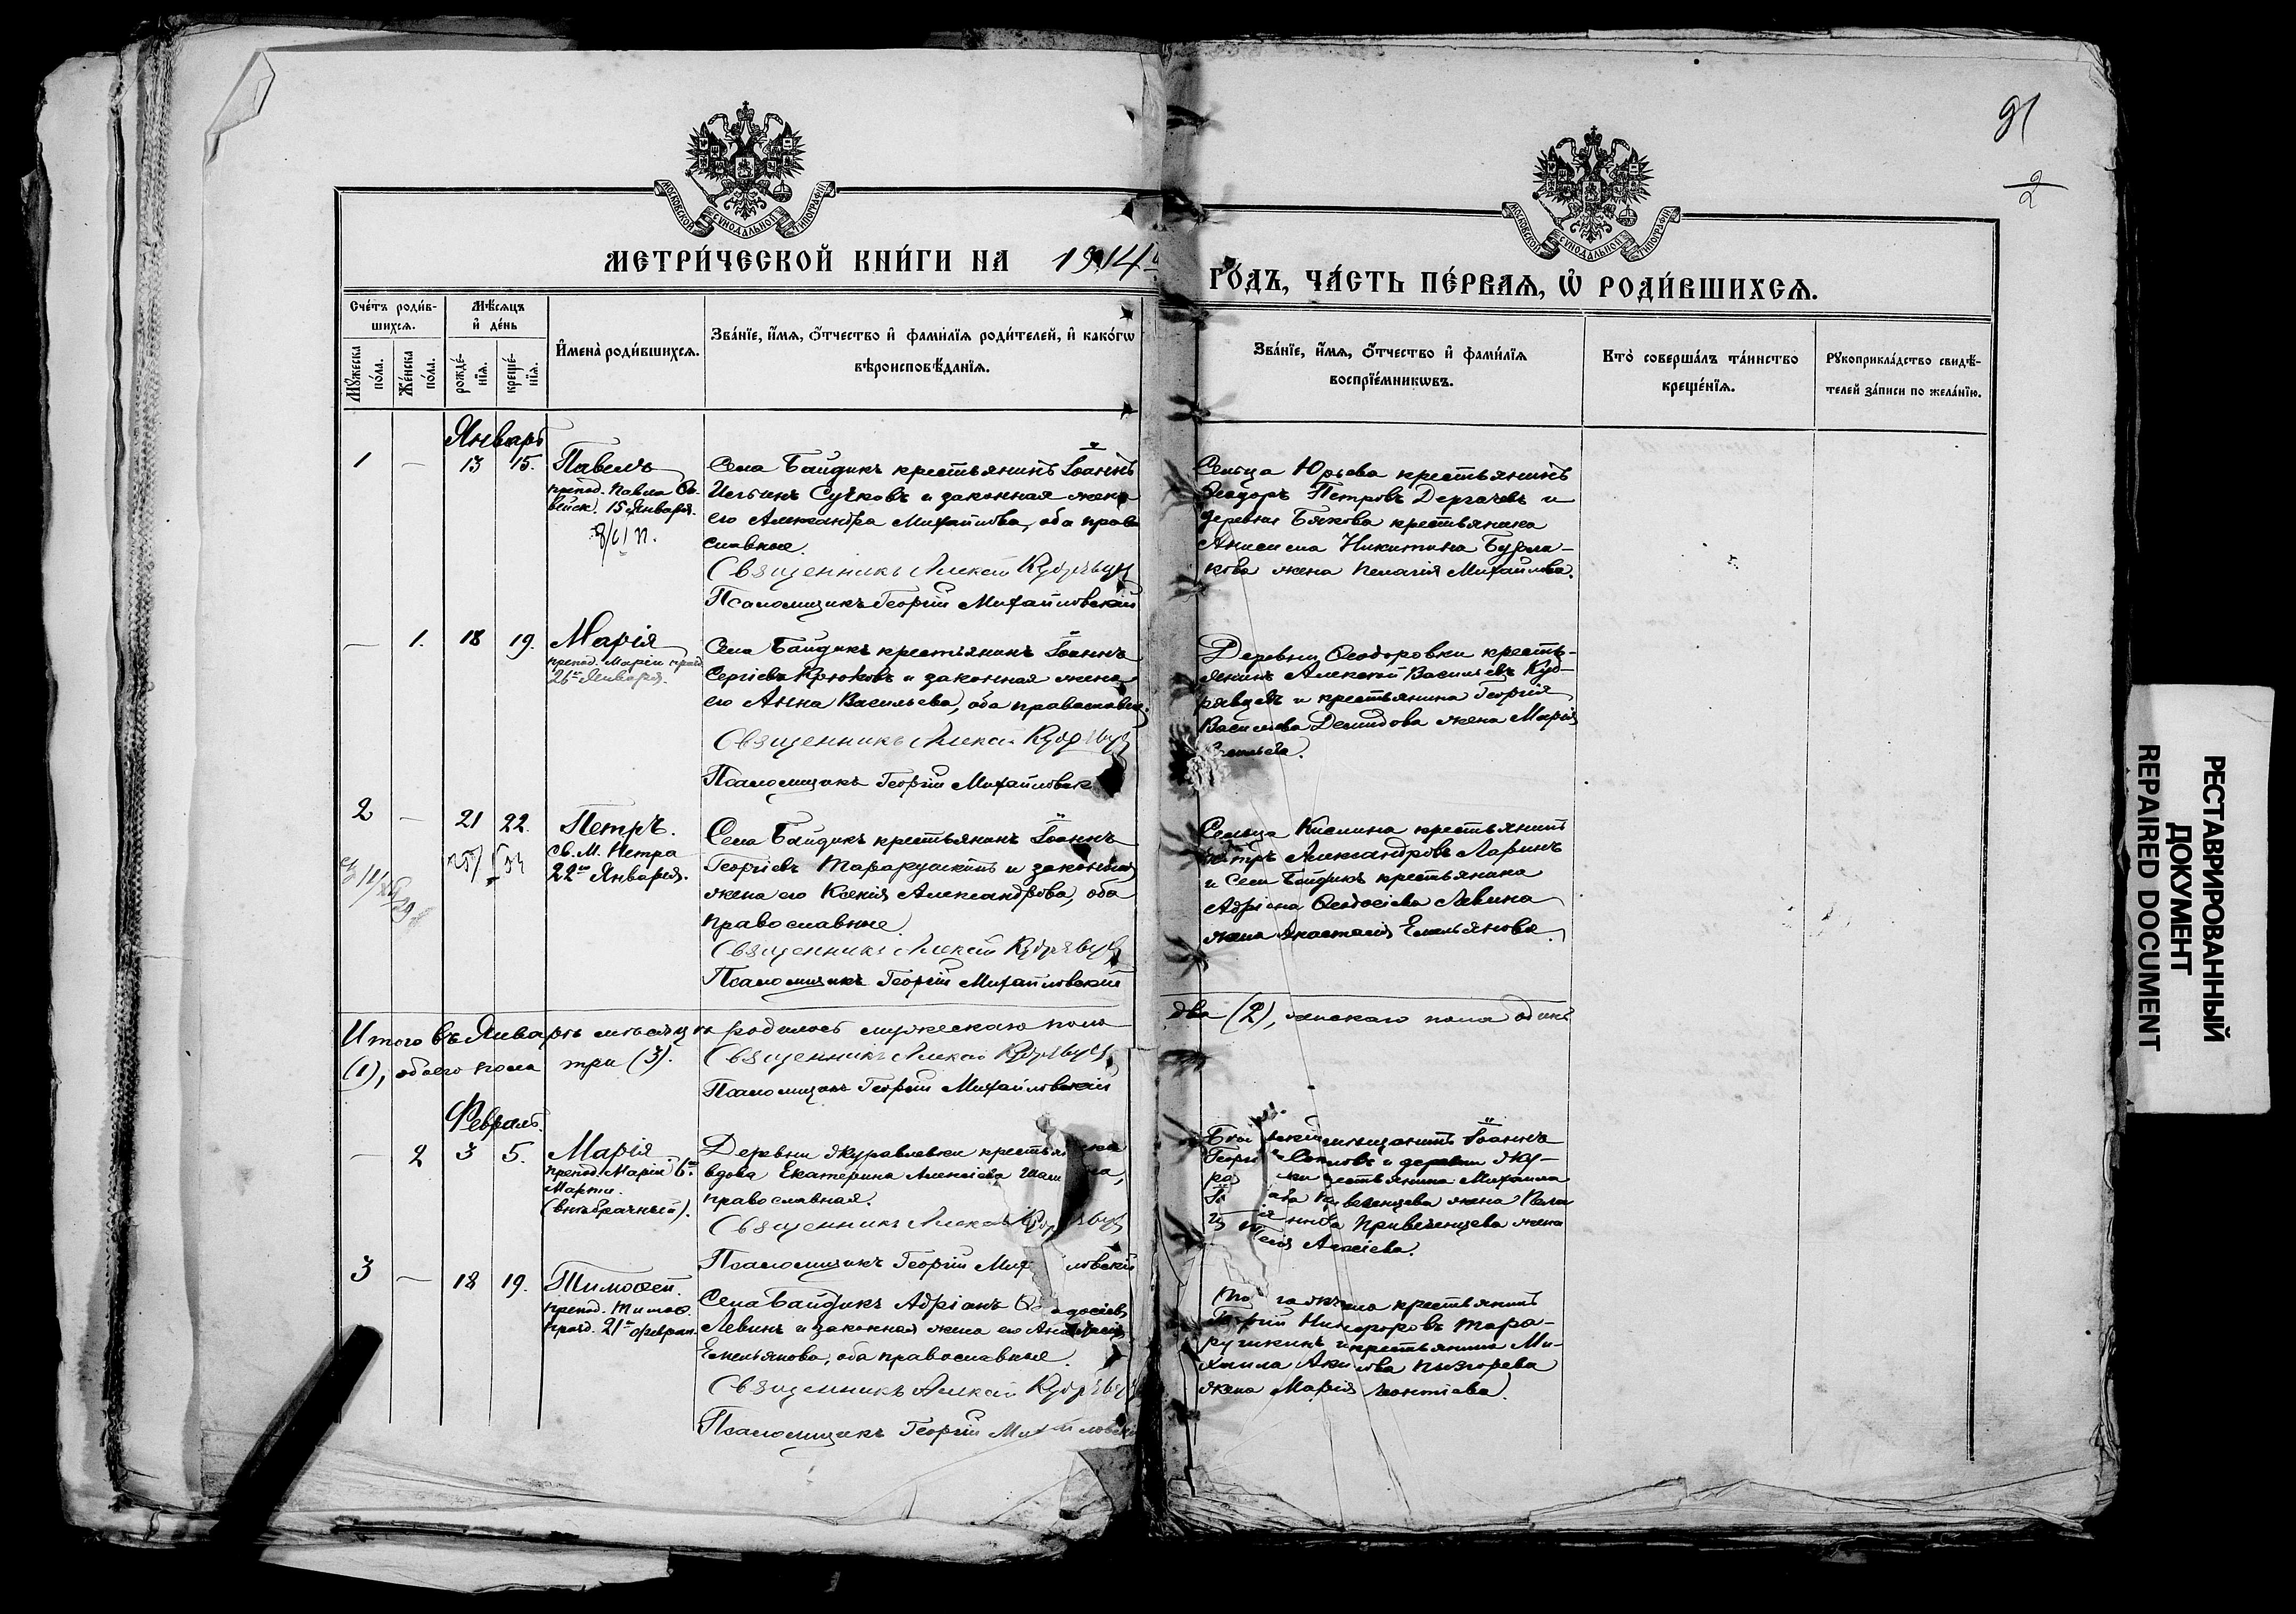 91
2
2
МОСКОВСКОЙ СѴНОДАЛЬНОЙ ТИПОГРАФІИ
МОСКОВСКОЙ СѴНОДАЛЬНОЙ ТИПОГРАФІИ
МЕТРИ́ЧЕСКОЙ КНИ́ГИ НА 1914
ГО́ДЪ, ЧА́СТЬ ПЕ́РВАѦ, Ѡ҆ РОДИ́ВШИХСѦ.
Сче́тъ роди́в-
шихсѧ.
Мꙋ́жеска по́ла.
Же́нска по́ла.
Мѣ́сѧцъ
и҆ де́нь
рожде́-
нїѧ.
креще́-
нїѧ.
И҆мена̀ роди́вшихсѧ.
Зва́нїе, и҆́мѧ, ѻ҆́тчество и҆ фами́лїѧ роди́телей, и҆ како́гѡ
вѣроисповѣ́данїѧ.
Зва́нїе, и҆́мѧ, ѻ҆́тчество и҆ фами́лїѧ
воспрїе́мникѡвъ.
Кто̀ соверша́лъ та́инство
креще́нїѧ.
Рꙋкоприкла́дство свидѣ́-
телей за́писи по жела́нїю.
Январь
1 — 13 15. Павелъ
препод. Павла Ѳи-
вейск. 15 Января.
Села Байдикъ крестьянинъ Іоаннъ
Ильинъ Сучковъ и законная жена
его Александра Михайлова, оба право
славные.
Священникъ Алексій Кудрявцев
Псаломщикъ Георгій Михайловскій
Сельца Юрьева крестьянинъ
Ѳеодоръ Петровъ Дергачевъ и
деревни Бякова крестьянина
Анисима Никитина
жена Пелагія Михайлова.
— 1. 18 19. Марія
препод. Маріи празд.
26го Января.
Села Байдикъ крестьянинъ Іоаннъ
Сергіевъ Крюковъ и законная жена
его Анна Васильева, оба православн.
Священникъ Алексій Кудрявцев
Псаломщикъ Георгій Михайловск
Деревни Ѳеодоровки кресть-
янинъ Алексій Васильевъ Куд-
рявцевъ и крестьянина Георгія
Васильева Демидова жена Марія
2 — 21 22. Петръ.
св. М. Петра
22го Января.
Села Байдикъ крестьянинъ Іоаннъ
Георгіевъ Таракушкинъ и законная
жена его Ксенія Александрова, оба
православные.
Священникъ Алексій Кудрявцев
Псаломщикъ Георгій Михайловскій
Сельца Кислина крестьянинъ
Петръ Александровъ Ларинъ
и Села Байдикъ крестьянина
Адріана Ѳеодосіева Левина
жена Анастасія Емельянова.
Итого въ Январѣ мѣсяцѣ родилось мужескаго пола
два (2), женскаго пола одинъ
(1), обоего пола три (3).
Священникъ Алексій Кудрявцев
Псаломщикъ Георгій Михайловскій
Февраль.
— 2 3 5. Марія
препод. Маріи 6го
Марта.
(внѣбрачный).
Деревни Журавлевки крестьянка
вдова Екатерина Алексіева
православная.
Священникъ Алексій Кудрявцев
Псаломщикъ Георгій Михайловскій
мѣщанинъ Іоаннъ
и деревни Жу-
крестьянина Михаила
жена Пела
Привезенцева жена
Алексіева.
3 — 18 19. Тимоѳей.
препод. Тимоѳ.
празд. 21го Феврал.
Села Байдикъ Адріанъ Ѳеодосіевъ
Левинъ и законная жена его Анастасія
Емельянова, оба православные.
Священникъ Алексій Кудрявцев
Псаломщикъ Георгій Михайловскій
крестьянинъ
Георгій Никифоровъ Тара-
кушкинъ и крестьянина Ми-
хаила
жена Марія Леонтіева.
РЕСТАВРИРОВАННЫЙ
ДОКУМЕНТ
REPAIRED DOCUMENT